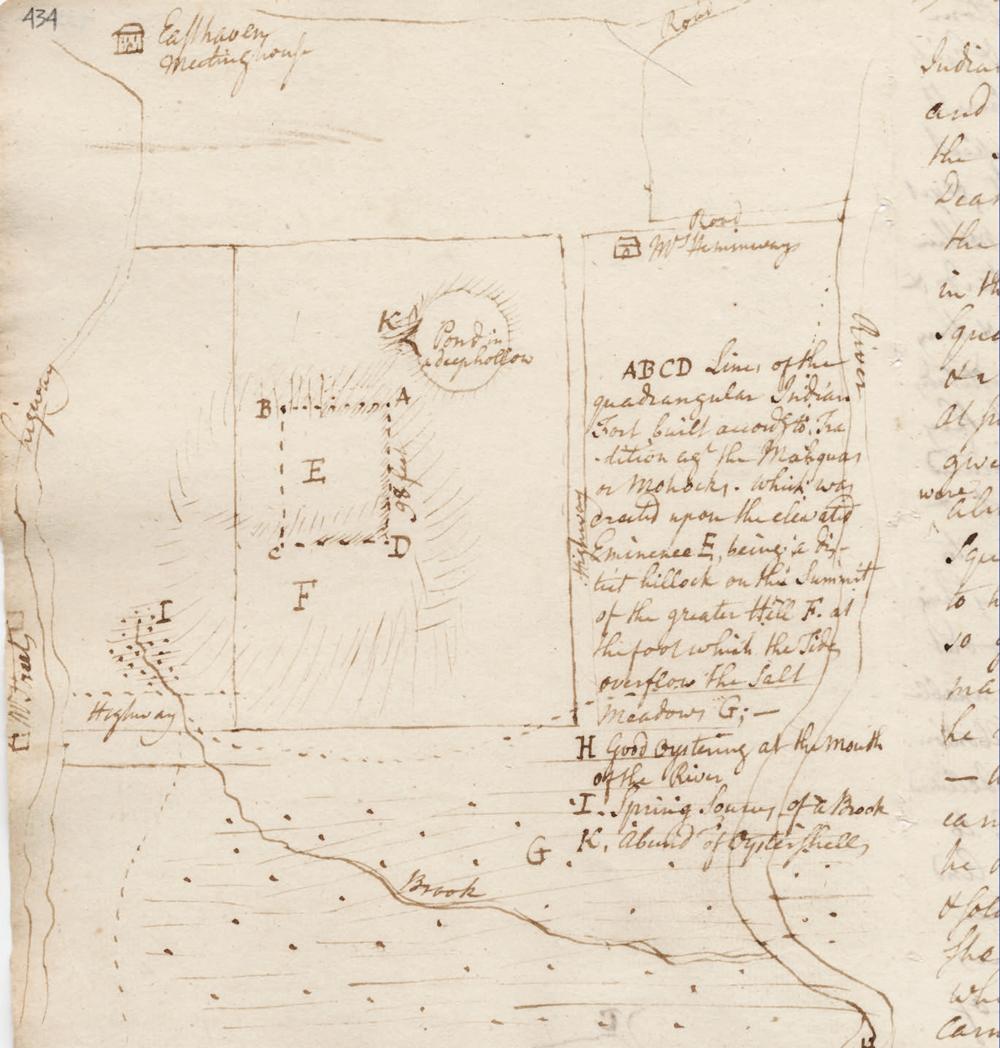 434
Easthaven
Meetinghouse
Road
Road
Mrs Hemmways
River
highway
K
Pond in
a deep hollow
B
A
E
98 feet
C
D
F
I
Street
Highway
Highway
ABCD Lines of the
quadrangular Indian
Fort built accordg to Tra
-dition agt the Mahquas
or Mohocks. which was
erected upon the elevated
Eminence E, being a dis-
tict hillock on the Summit
of the greater Hill F. at
the foot which the Tide
overflow the Salt
Meadows G; —
H Good oystering at the mouth
of the River
I. Spring Source of a Brook
K. Abund of Oystershells
G
Brook
H
India
and
the
Dea
the
in th
Sque
or
at
give
were
Squ
to
so
ma
he
—
ca
he
& sol
She
wh
Cam